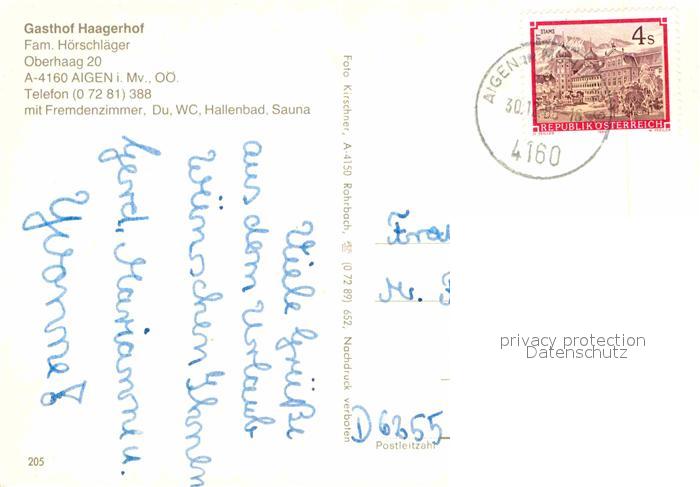 Gasthof Haagerhof
Fam. Hörschläger
Oberhaag 20
A-4160 AIGEN i. Mv., OÖ.
Telefon (0 72 81) 388
mit Fremdenzimmer, Du, WC, Hallenbad, Sauna
Viele Grüße
aus dem Urlaub
wünschen Ihnen
Gerd, Marianne u.
Yvonne
205
Foto Kirschner, A-4150 Rohrbach, ☎ (0 72 89) 652, Nachdruck verboten
STAMS
4 S
REPUBLIK ÖSTERREICH
AIGEN
30.1
4160
D 6255
Postleitzahl
privacy protection
Datenschutz